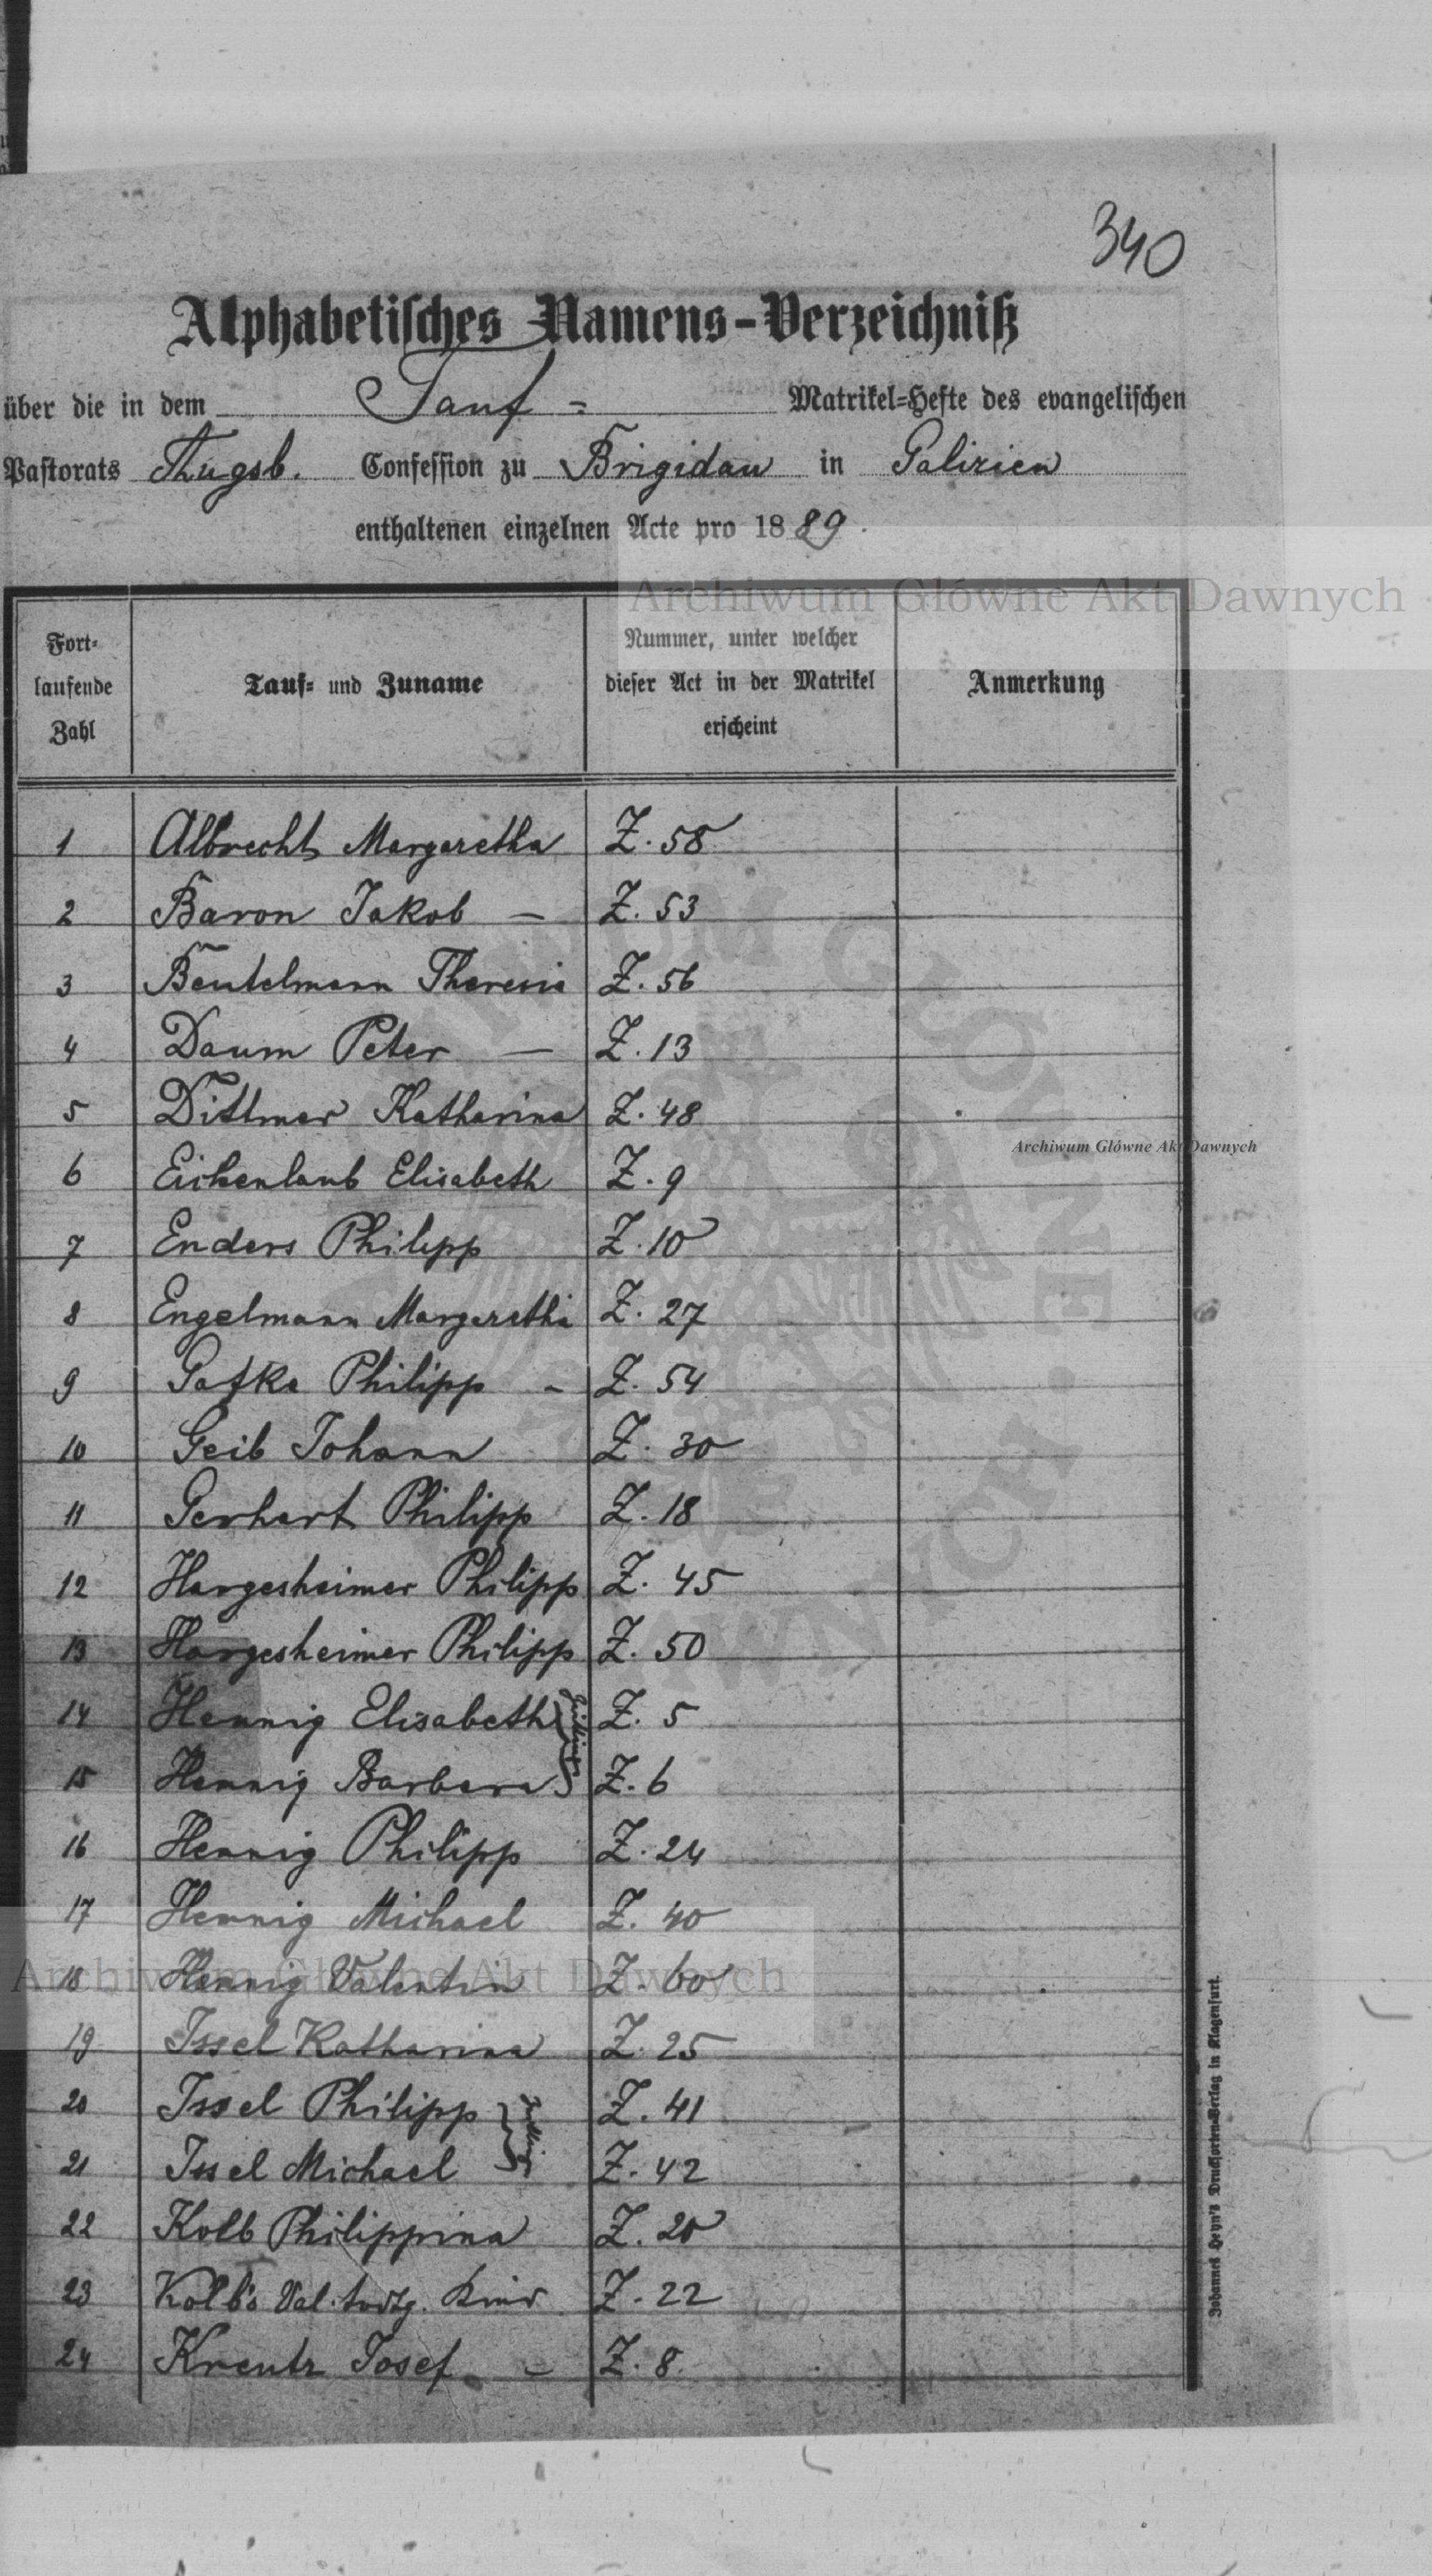 340
Alphabetisches Namens-Verzeichniß
über die in dem Tauf- Matrikel-Hefte des evangelischen
Pastorats Augsb. Confession zu Brigidau in Galizien
enthaltenen einzelnen Acte pro 1889.
Archiwum Główne Akt Dawnych
Fort-
laufende
Zahl
Tauf- und Zuname
Nummer, unter welcher
dieser Act in der Matrikel
erscheint
Anmerkung
1 Albrecht Margaretha Z. 58
2 Baron Jakob — Z. 53
3 Beutelmann Theresia Z. 56
4 Daum Peter — Z. 13
5 Dittmer Katharina Z. 48
Archiwum Główne Akt Dawnych
6 Eichenlaub Elisabeth Z. 9
7 Enders Philipp Z. 10
8 Engelmann Margaretha Z. 27
9 Gafke Philipp - Z. 54
10 Geib Johann Z. 30
11 Gerhart Philipp Z. 18
12 Hargesheimer Philipp Z. 45
13 Hargesheimer Philipp Z. 50
14 Hennig Elisabeth Z. 5
15 Hennig Barbara Z. 6
16 Hennig Philipp Z. 24
17 Hennig Michael Z. 40
18 Hennig Valentin Z. 60
Archiwum Główne Akt Dawnych
19 Issel Katharina Z. 25
20 Issel Philipp Z. 41
21 Issel Michael Z. 42
22 Kolb Philippina Z. 20
23 Kolb's Val. todtg. Kind Z. 22
24 Kreutz Josef - Z. 8.
Johannes Heyn's Drucksorten-Verlag in Klagenfurt.